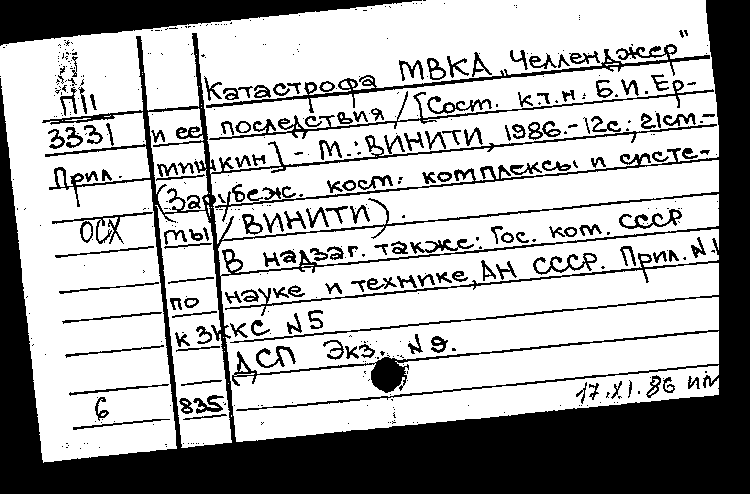 Катастрофа МВКА „Челленджер"
П11
3331 и ее последствия / [Сост. к.т.н. Б.И. Ер-
Прил. мишкин] - М.: ВИНИТИ, 1986.-12с.; 21см.-
(Зарубеж. косм. комплексы и систе-
ОСХ мы / ВИНИТИ).
В надзаг. также: Гос. ком. СССР
по науке и технике, АН СССР. Прил. N.1
к ЗККС N5
ДСП Экз. N9.
6 835
17.XI.86